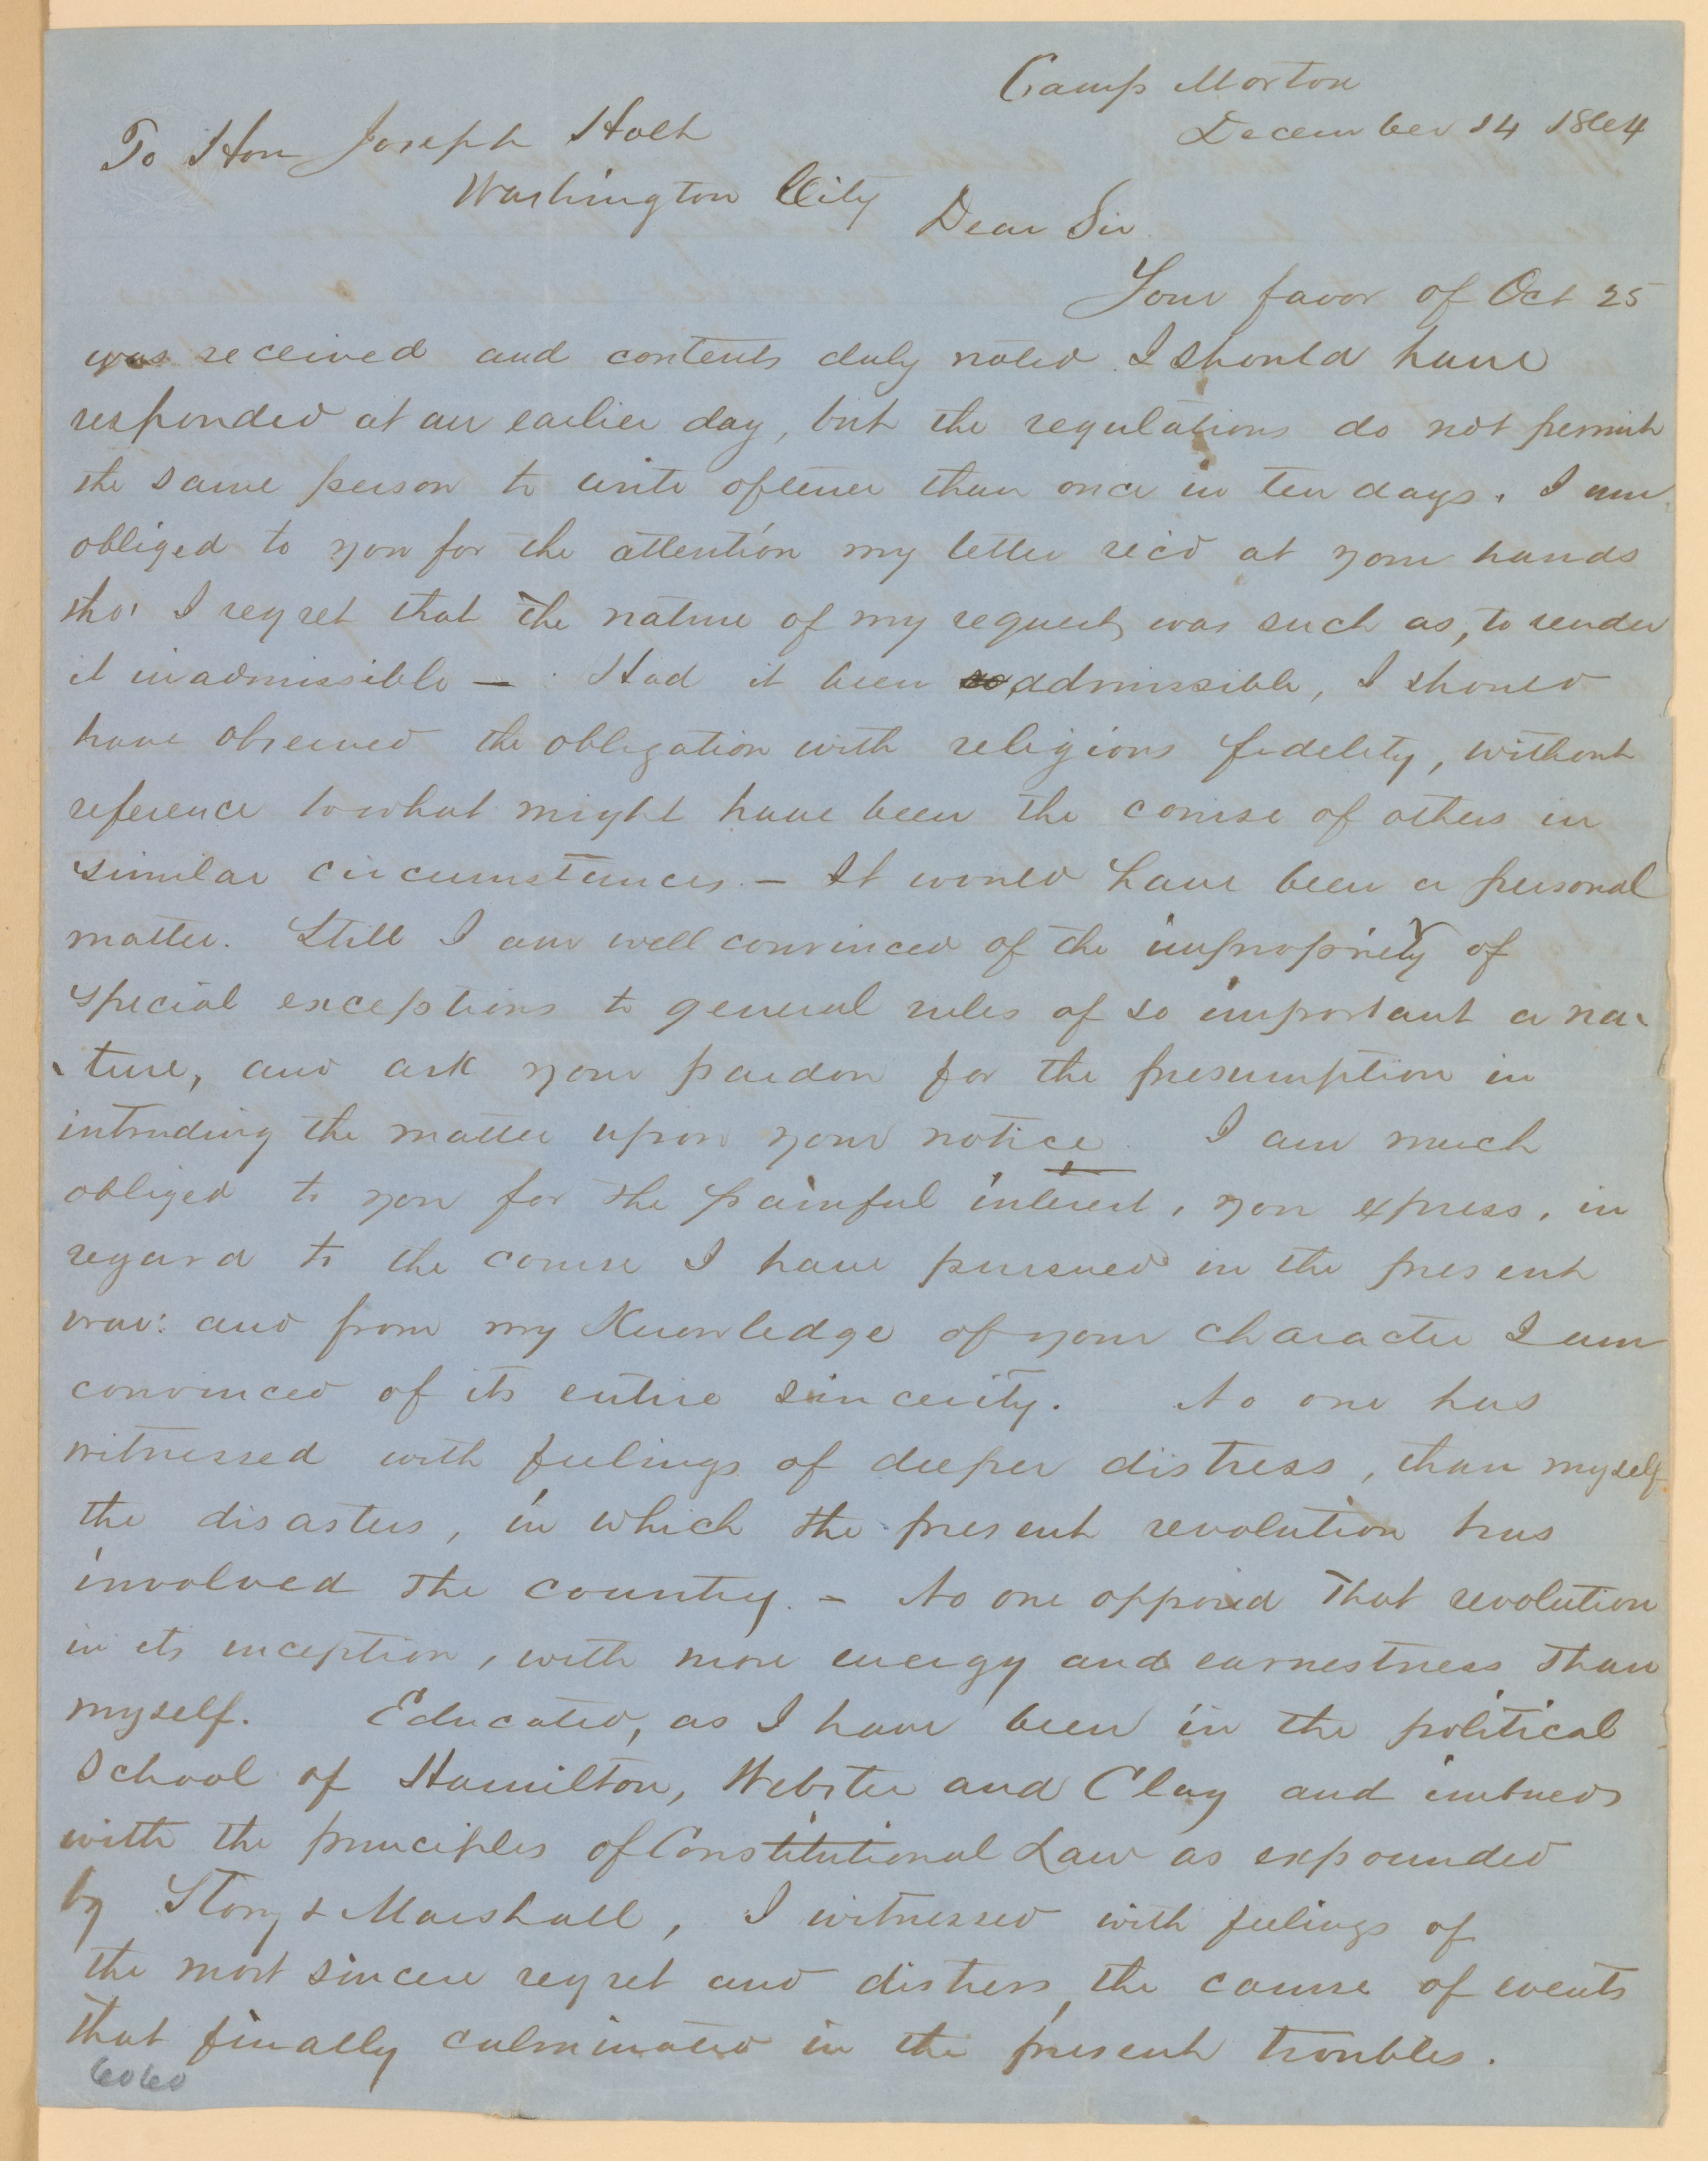 Camp Morton
December 14 1864
To Hon Joseph Holt
Washington City
Dear Sir.
Your favor of Oct 25
was received and contents duly noted. I should have
responded at an earlier day, but the regulations do not permit
the same person to write oftener than once in ten days. I am
obliged to you for the attention my letter rec'd at your hands
tho' I regret that the nature of my request, was such as, to render
it inadmissible — Had it been admissible, I should
have observed the obligation with religious fidelity, without
reference to what might have been the course of others in
similar circumstances. — It would have been a personal
matter. Still I am well convinced of the impropriety of
special exceptions to general rules of so important a na-
-ture, and ask your pardon for the presumption in
intruding the matter upon your notice. I am much
obliged to you for the painful interest, you express, in
regard to the course I have pursued in the present
war: and from my Knowledge of your character I am
convinced of its entire sincerity. No one has
witnessed with feelings of deeper distress, than myself
the disasters, in which the present revolution has
involved the country. — No one opposed that revolution
in its inception, with more energy and earnestness than
myself. Educated, as I have been in the political
School of Hamilton, Webster and Clay and imbued
with the principles of Constitutional Law as expounded
by Story & Marshall, I witnessed with feelings of
the most sincere regret and distress, the course of events
that finally culminated in the present troubles.
6060